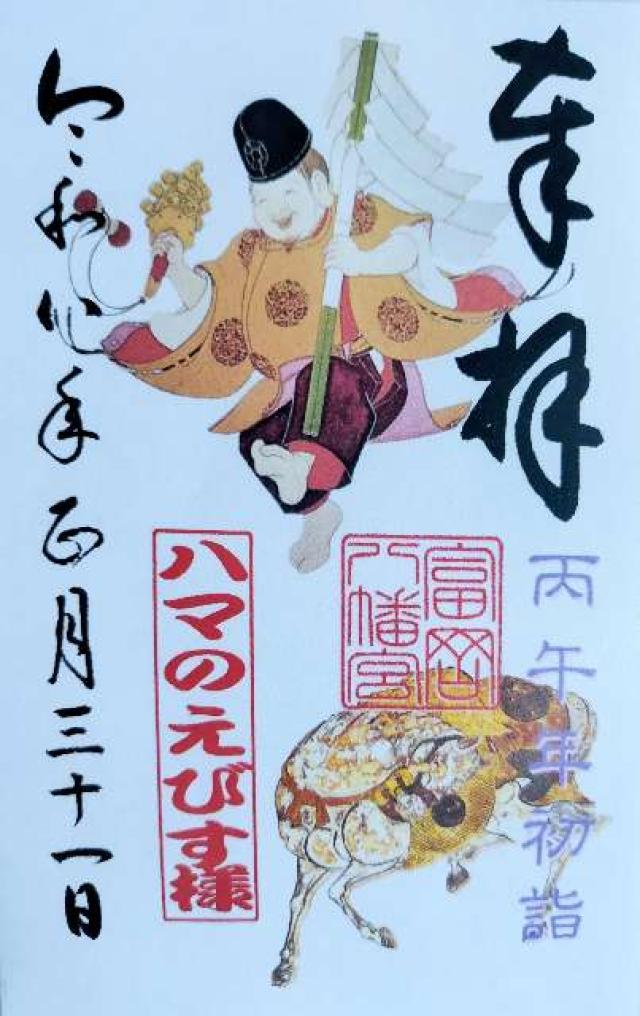 奉拝
丙午年初詣
富岡
八幡宮
ハマのえびす様
令和八年正月三十一日